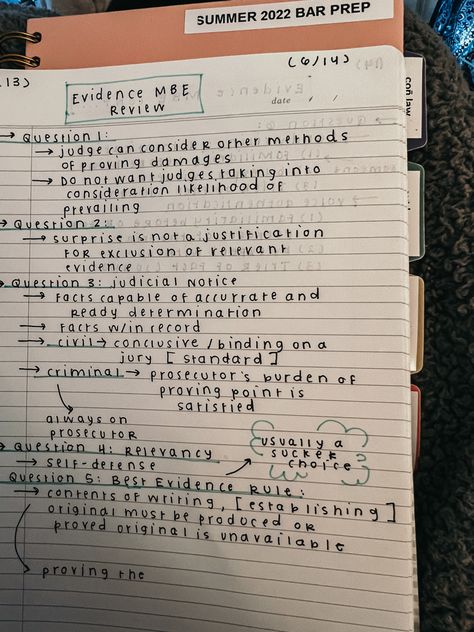 SUMMER 2022 BAR PREP
(6/14)
13)
Evidence MBE
Review
con law
date
→ Question 1:
→ judge can consider other methods
of proving damages
→ Do not want judges taking into
consideration likelihood of
prevailing
→ Question 2:
→ surprise is not a justification
for exclusion of relevant
evidence
→ Question 3: Judicial Notice
→ Facts capable of accurrate and
ready determination
→ Facts w/in record
→ civil → conclusive / binding on a
jury [standard]
→ criminal → prosecutor's burden of
proving point is
satisfied
always on
prosecutor
→ Question 4: Relevancy
→ self-defense
usually a
sucker
choice
Question 5: Best Evidence Rule:
→ contents of writing, [establishing]
original must be produced or
proved original is unavailable
→ proving the